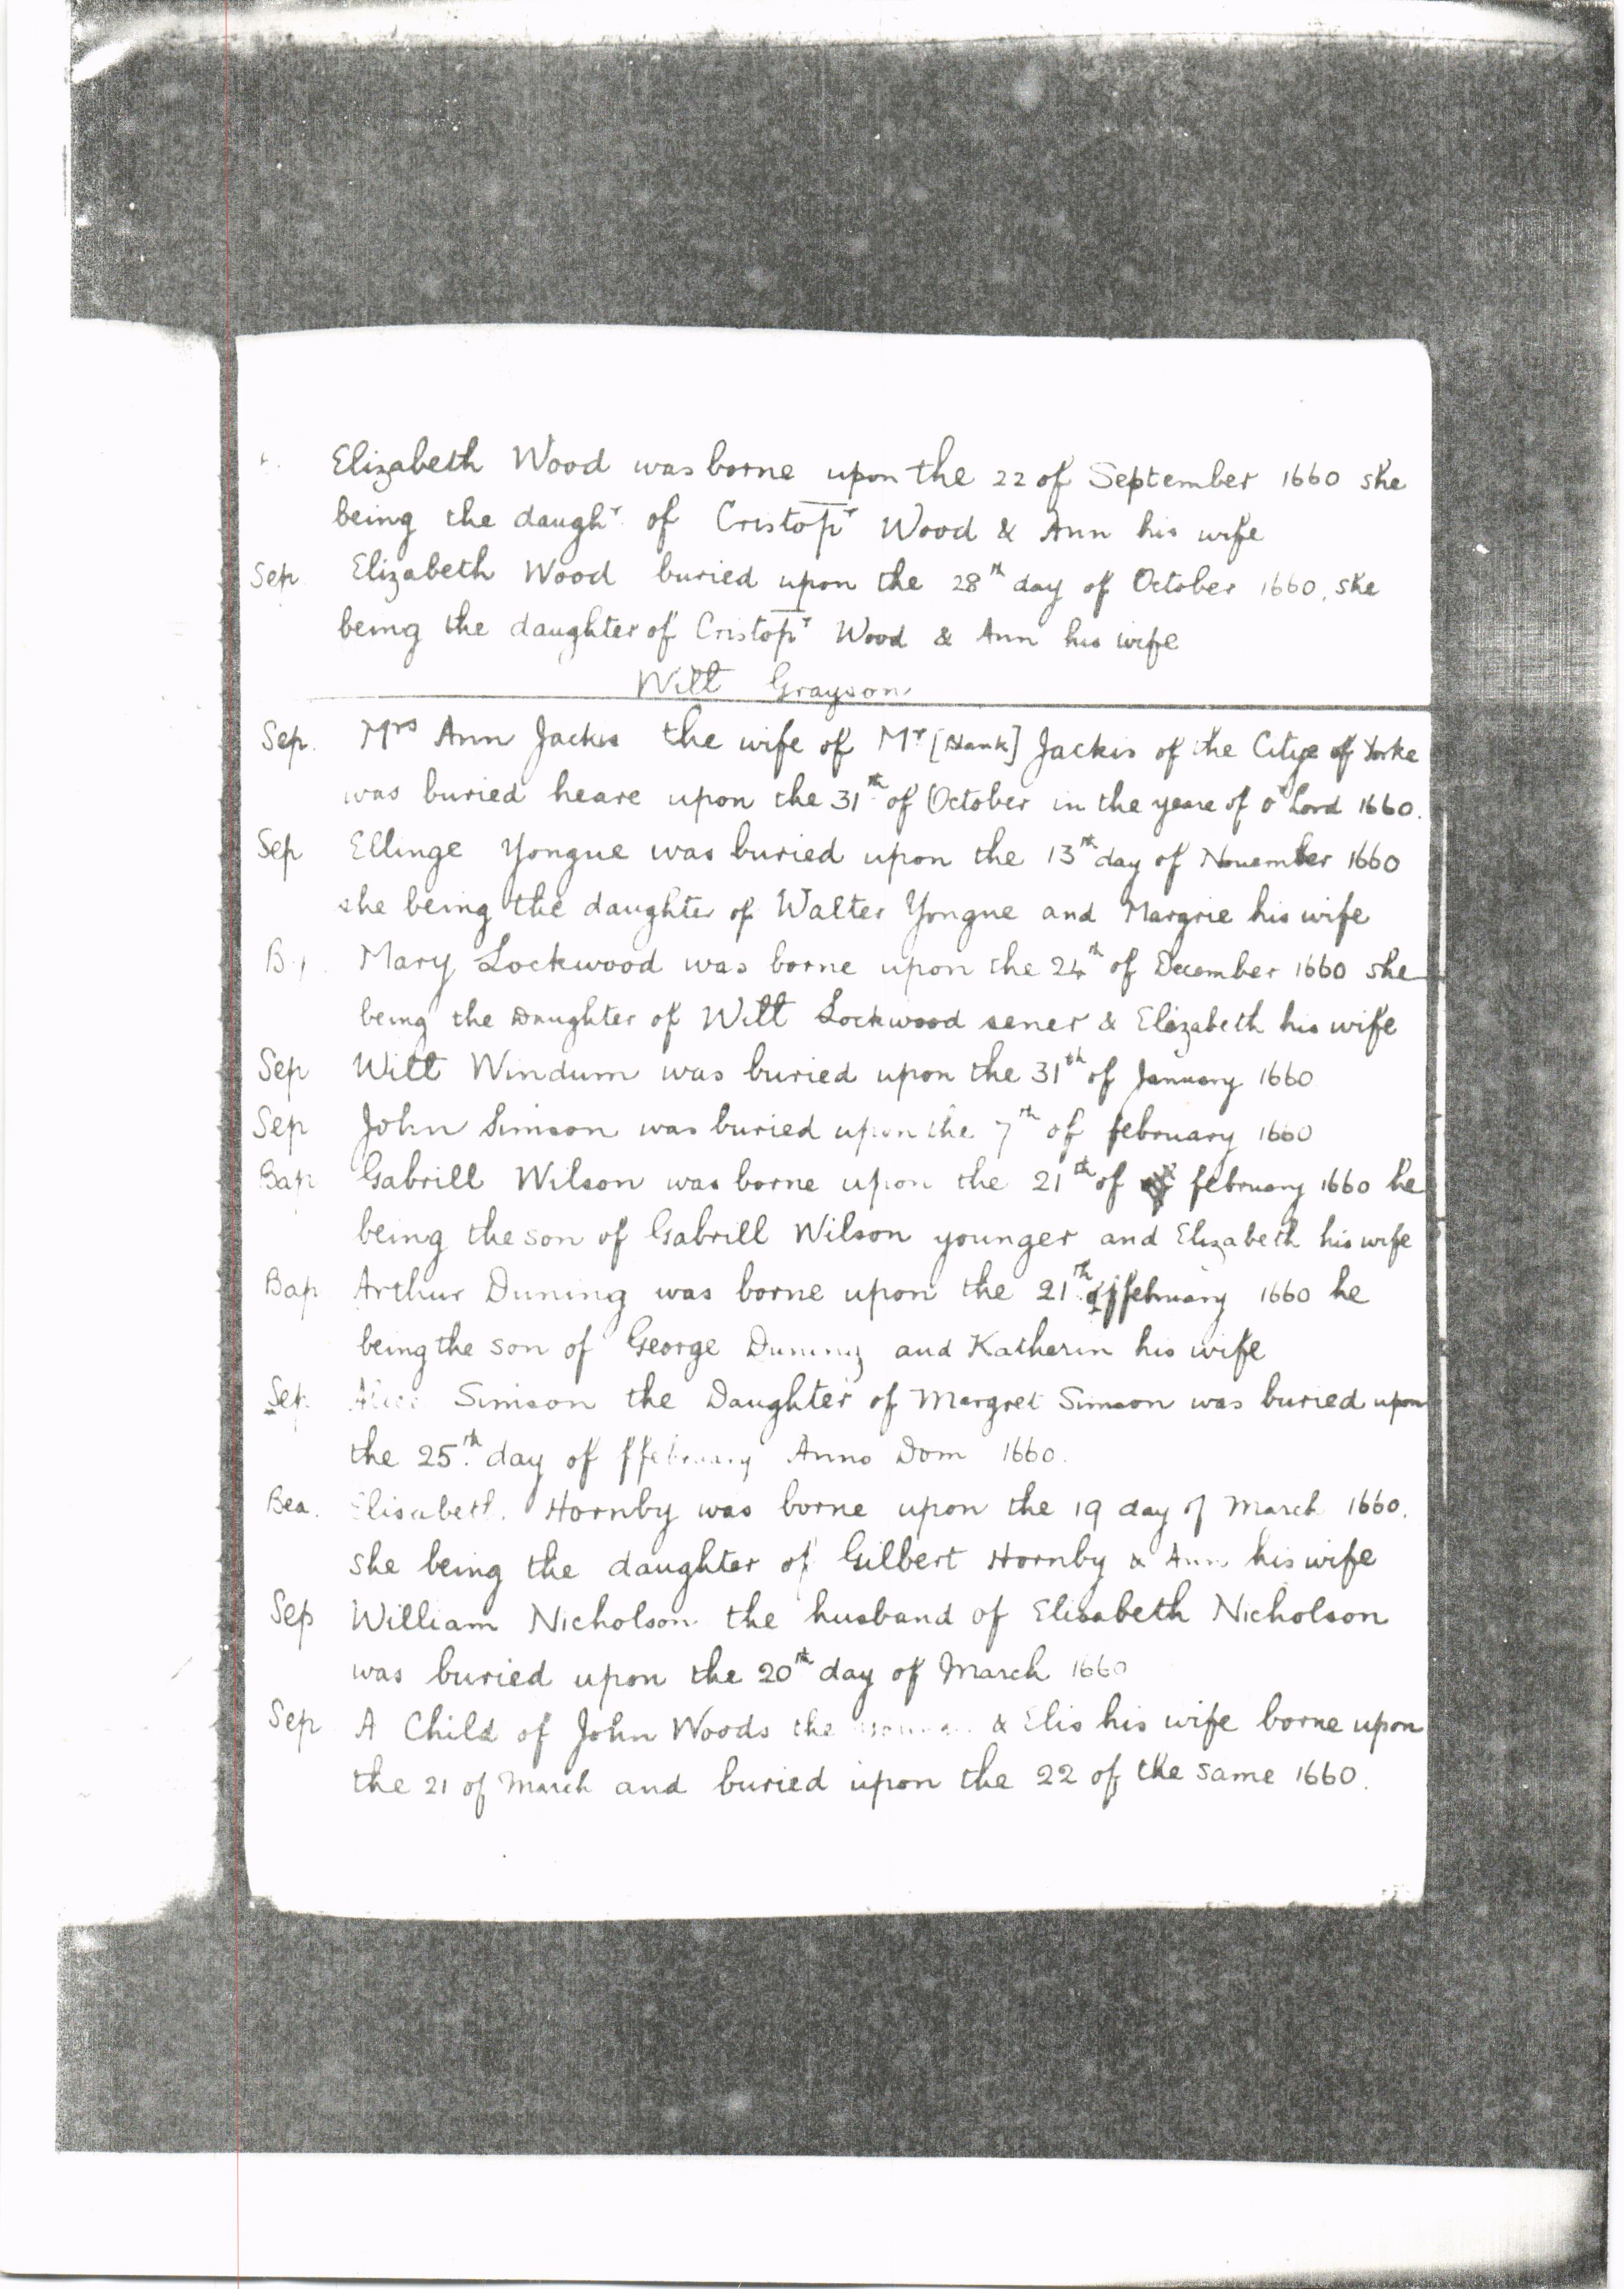 Elizabeth Wood was borne upon the 22 of September 1660 she
being the daughr. of Cristopr Wood & Ann his wife
Sep. Elizabeth Wood buried upon the 28th day of October 1660. she
being the daughter of Cristopr Wood & Ann his wife
Willt Grayson
Sep. Mrs Ann Jackis the wife of Mr [Blank] Jackis of the Citye of Yorke
was buried heare upon the 31th of October in the yeare of or Lord 1660.
Sep Ellinge Yongue was buried upon the 13th day of November 1660
she being the daughter of Walter Yongue and Margrie his wife
Mary Lockwood was borne upon the 24th of December 1660 she
being the Daughter of Willt Lockwood sener & Elizabeth his wife
Sep Willt Windum was buried upon the 31th of January 1660
Sep John Simson was buried upon the 7th of february 1660
Bap Gabrill Wilson was borne upon the 21th of february 1660 he
being the son of Gabrill Wilson younger and Elizabeth his wife
Bap Arthur Duning was borne upon the 21th of ffebruary 1660 he
being the son of George Duning and Katherin his wife
Sep. Alice Simson the Daughter of Margret Simson was buried upon
the 25.th day of ffebruary Anno Dom 1660.
Bea. Elisabeth Hornby was borne upon the 19 day of March 1660.
she being the daughter of Gilbert Hornby & Ann his wife
Sep William Nicholson the husband of Elisabeth Nicholson
was buried upon the 20th day of March 1660
Sep A Child of John Woods the & Elis his wife borne upon
the 21 of March and buried upon the 22 of the same 1660.